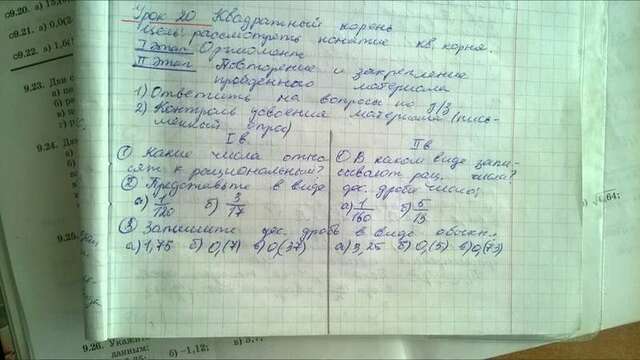 Урок 20 Квадратный корень
Цель: рассмотреть понятие кв. корня.
I этап Оргмомент
II этап Повторение и закрепление
пройденного материала
1) Ответить на вопросы по д/з
2) Контроль усвоения материала (пись-
менный опрос)
I в.
① Какие числа отно-
сят к рациональным?
② Представьте в виде дес. дроби число:
а) 1/120 б) 3/17
③ Запишите дес. дробь в виде обыкн.
а) 1,75 б) 0,(7) в) 0,(37)
II в.
① В каком виде запи-
сывают рац. числа?
а) 1/160 б) 5/13
а) 3,25 б) 0,(5) в) 0,(73)
с9.20.
с9.21. а) 0,0
с9.22. а) 1,6(
9.23. Для
9.24. Для
9.25.
9.26. Укажите
данным:
б) –1,12;
4,64;